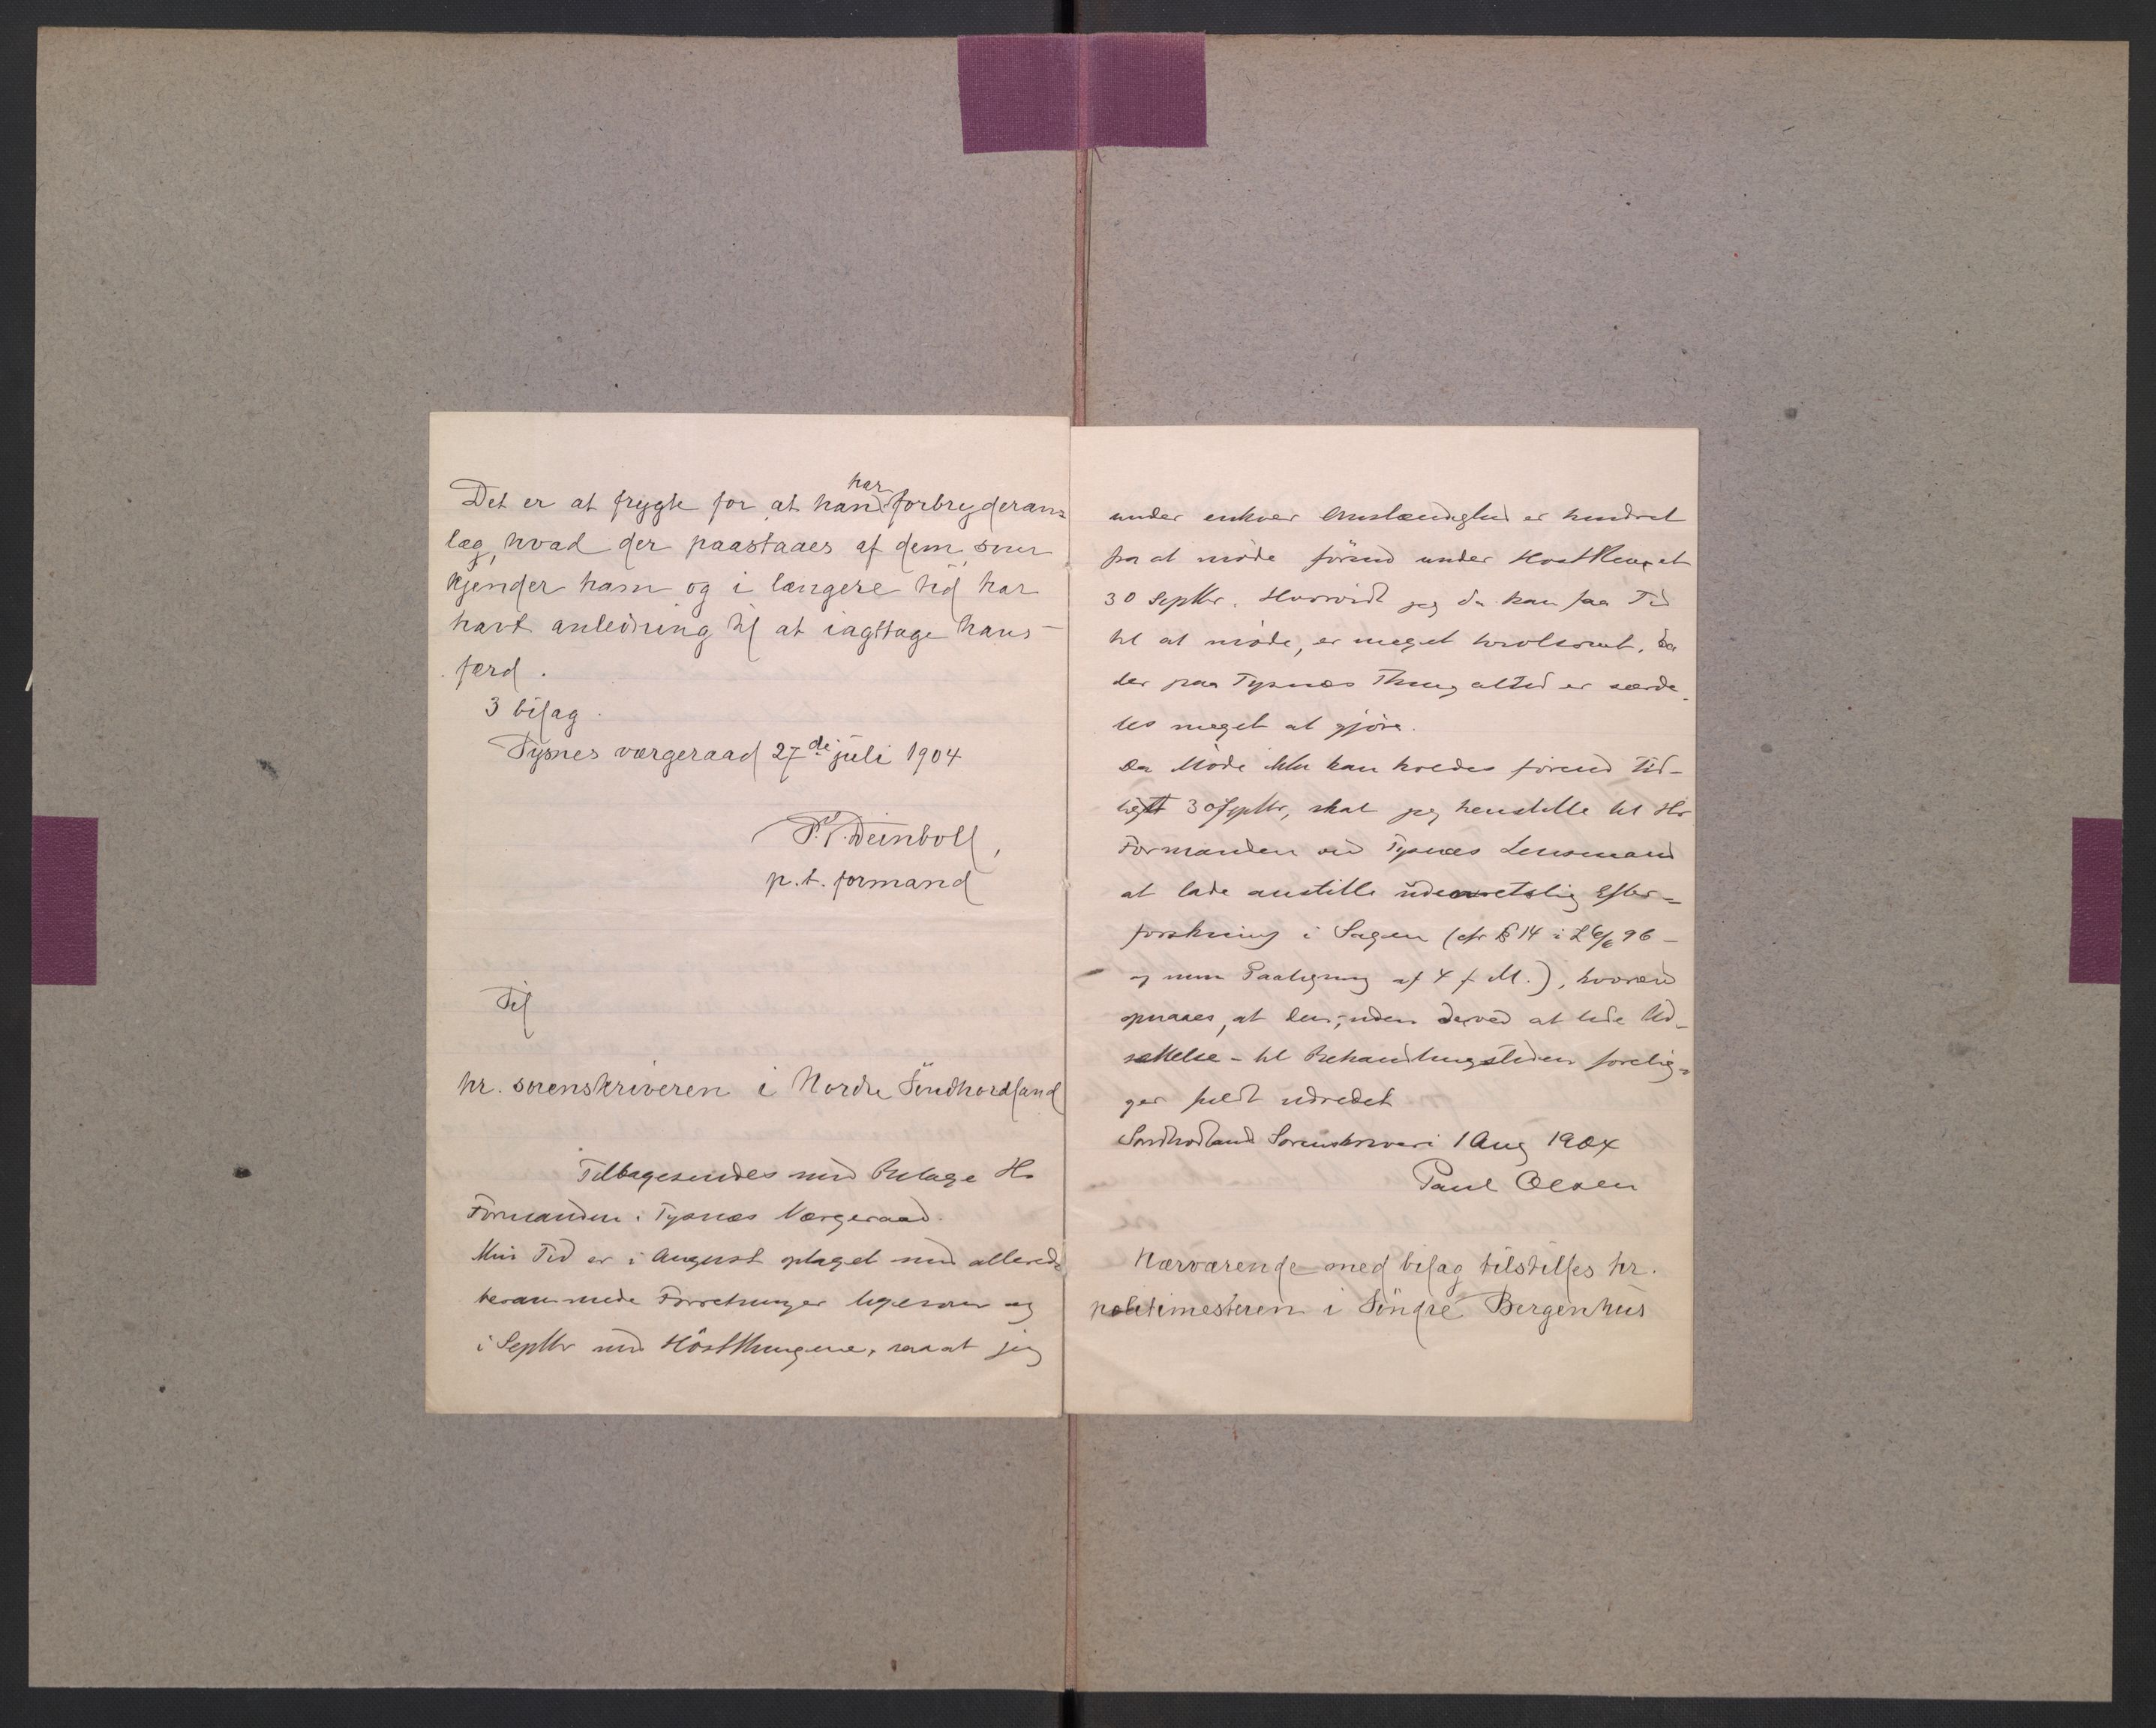 Det er at frygte for at han har forbryderan=
læg, hvad der paastaaes af dem, som
kjender ham og i længere tid har
havt anledning til at iagttage hans
færd.
3 bilag.
Tysnes værgeraad 27de juli 1904
P. T. Deinboll,
p.t. formand
Til
hr. sorenskriveren i Nordre Söndhordland
Tilbagesendes med Bilage Hr
Formanden i Tysnæs Værgeraad.
Min Tid er i August optaget med allerede
berammede Forretninger ligesom og
i Septbr med Höstthingene, saa at jeg
under enhver Omstændighed er hindret
fra at möde förend under Höstthinget
30 Septbr. Hvorvidt jeg da kan faa Tid
til at möde, er meget tvivlsomt, da
der paa Tysnæs Thing altid er særde-
les meget at gjöre.
Da Möde ikke kan holdes förend tid-
ligst 30 Septbr, skal jeg henstille til Hr
Formanden ved Tysnæs Lensmand
at lade anstille udenretslig Efter=
forskning i Sagen (cfr § 14 i L 6/6 96 -
og min Paategning af 4 f. M.), hvorved
opnaaes, at den, uden derved at lide Ud-
sættelse - til Behandlingstiden forelig=
ger fuldt udredet
Söndhordland Sorenskriveri 1 Aug 1904
Paul Olsen
Nærværende med bilag tilstilles hr.
politimesteren i Söndre Bergenhus